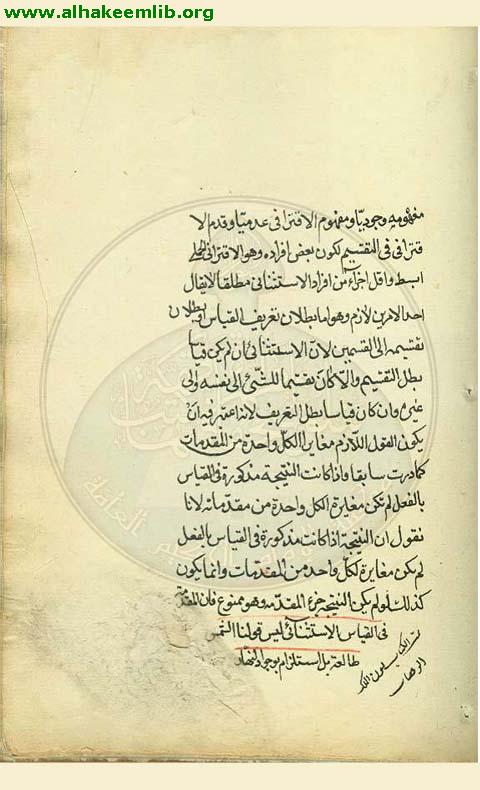 www.alhakeemlib.org
مفهوميه وجوديا ومفهوم الاقترانى عدميا وقدم الا
قترانى فى التقسيم لكون بعض افراده وهو الاقترانى الحملى
ابسط واقل اجزاء من افراد الاستثنائى مطلقا لا يقال
احد الامرين لازم وهو اما بطلان تعريف القياس او بطلان
تقسيمه الى القسمين لان الاستثنائى ان لم يكن قياسا
بطل التقسيم والا كان تقسيما للشئ الى نفسه والى
غيره وان كان قياسا بطل التعريف لانه اعتبر فيه ان
يكون القول اللازم مغايرا لكل واحدة من المقدمات
كما دريت سابقا واذا كانت النتيجة مذكورة فى القياس
بالفعل لم تكن مغايرة لكل واحدة من مقدماته لانا
نقول ان النتيجة اذا كانت مذكورة فى القياس بالفعل
لم يكن مغايرة لكل واحد من المقدمات وانما يكون
كذلك لو لم يكن النتيجة جزء المقدمة وهو ممنوع فان المقدمة
فى القياس الاستثنائى ليس قولنا الشمس
طالعة بل استلزام بوجود النهار
تمت الكتاب بعون الملك
الوهاب